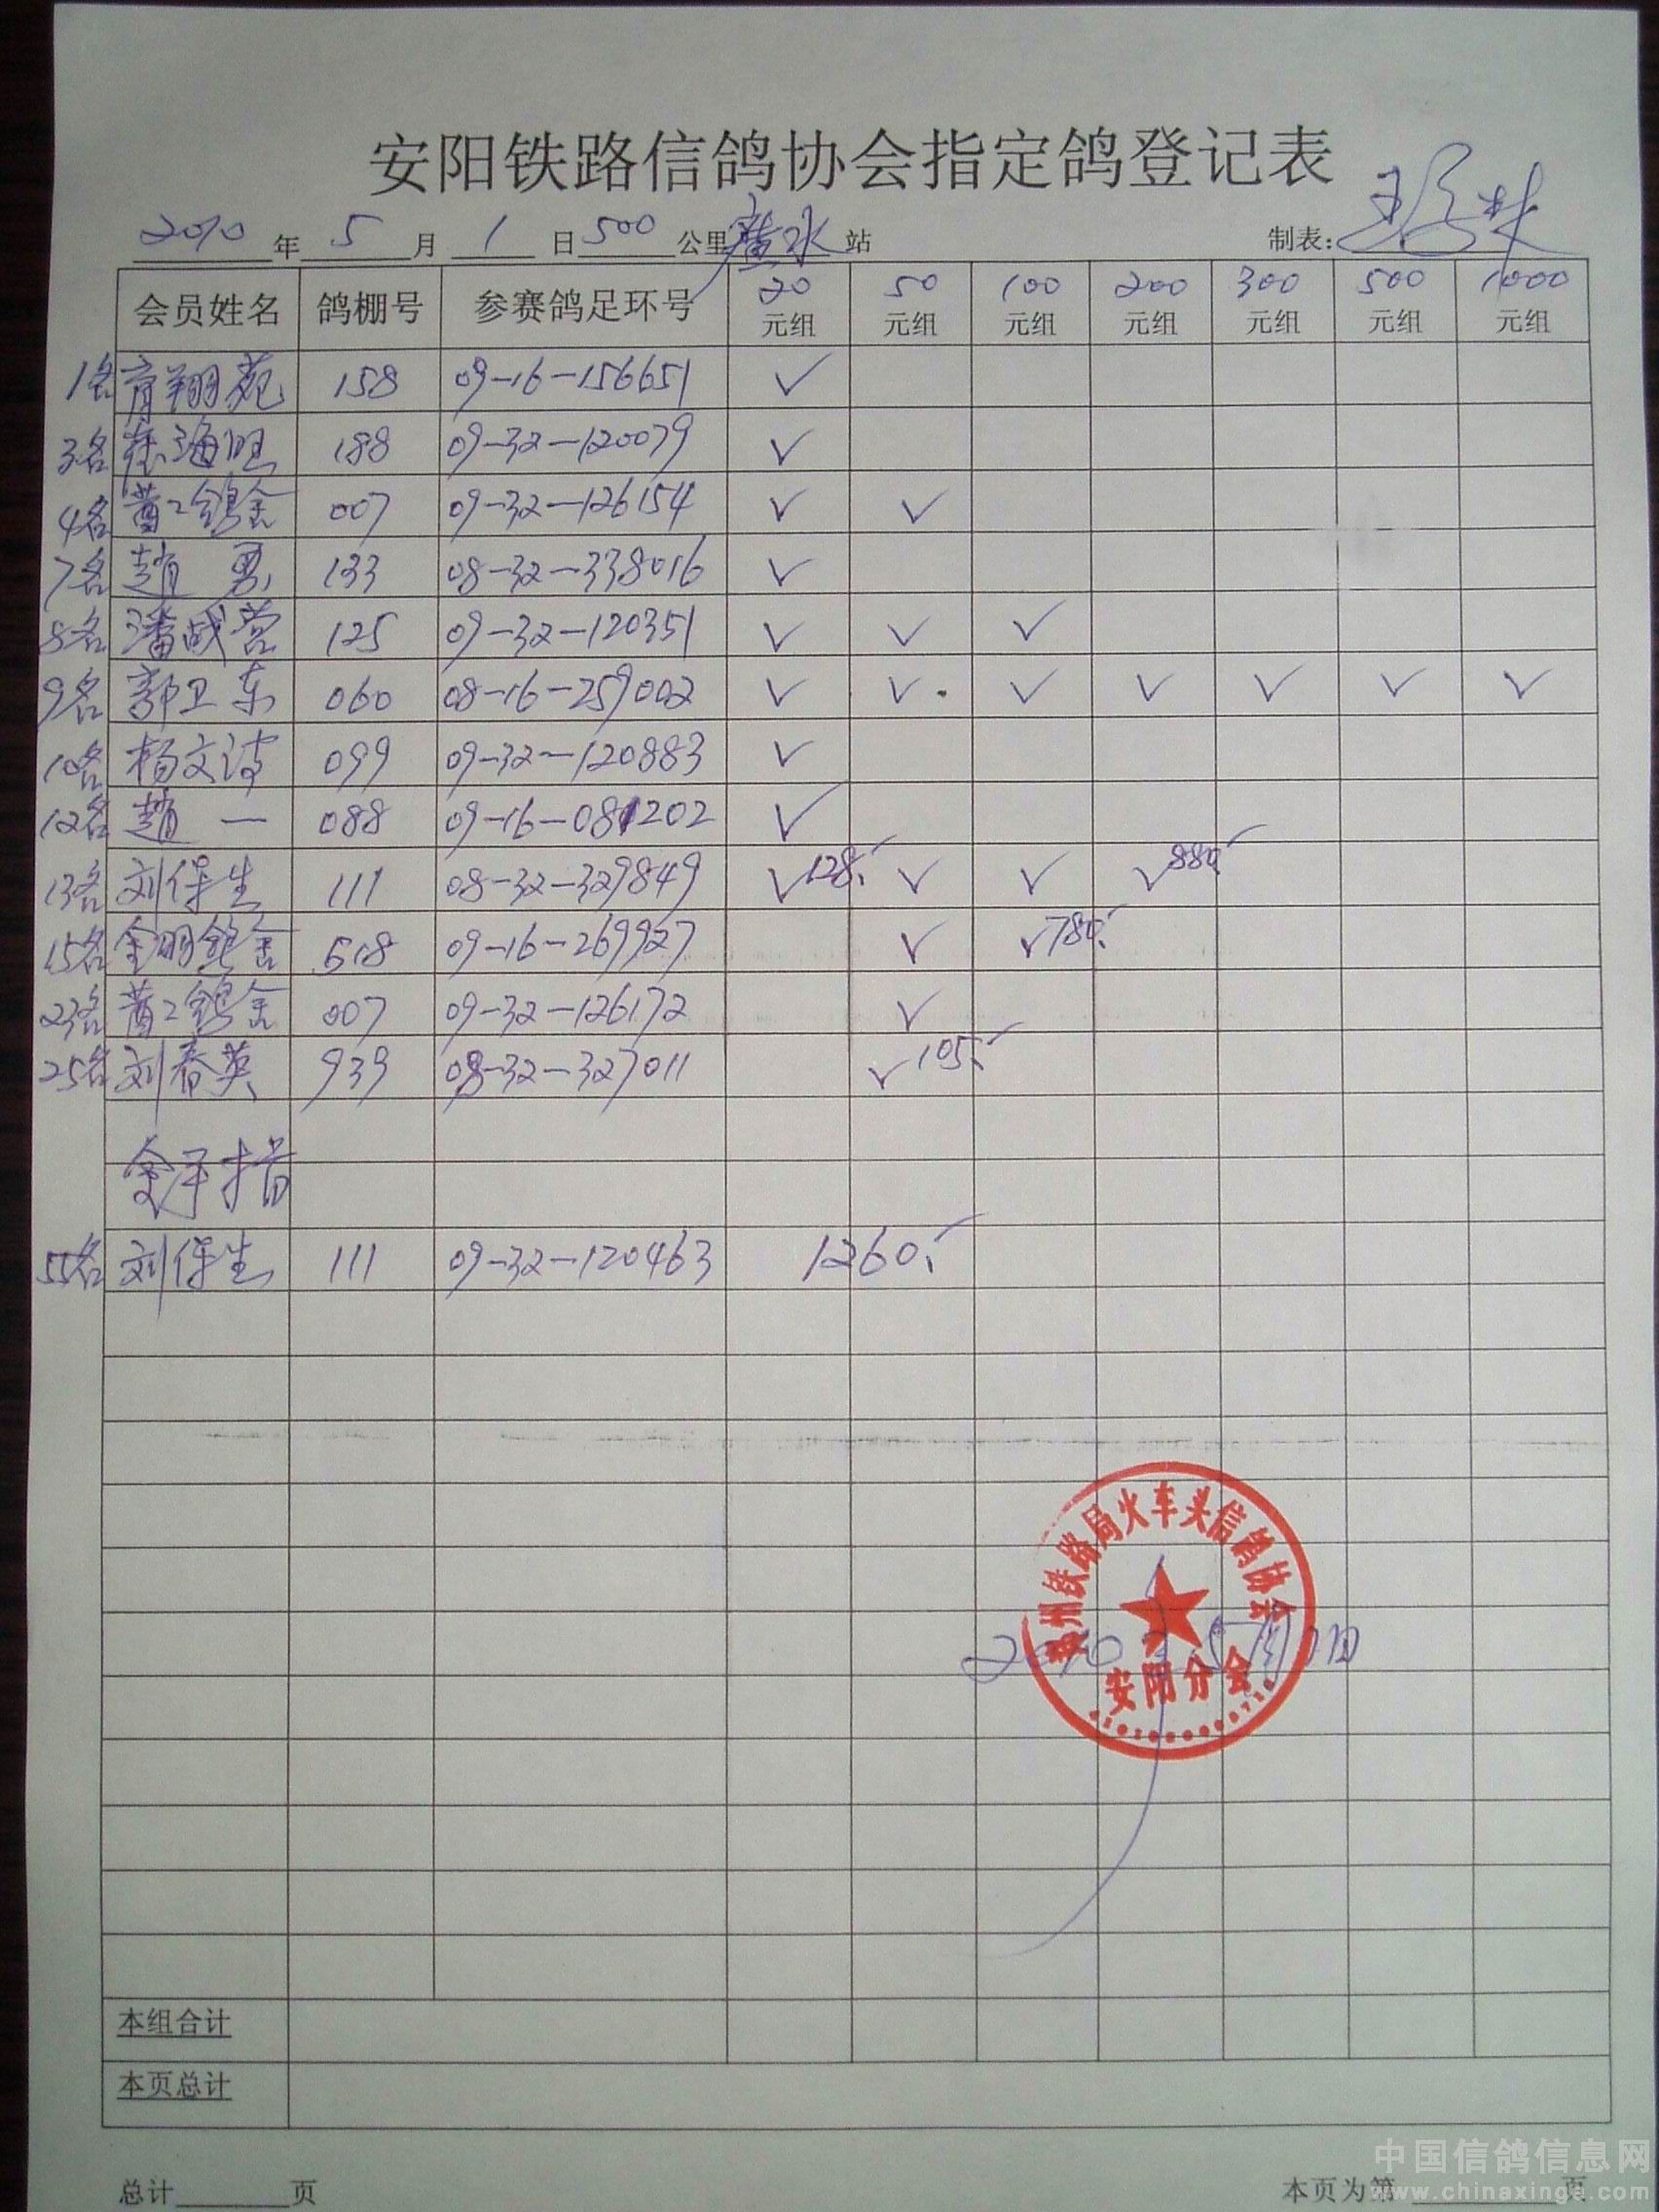 安阳铁路信鸽协会指定鸽登记表
2010年 5月 1日 500公里 广水站 制表:
会员姓名 鸽棚号 参赛鸽足环号 20元组 50元组 100元组 200元组 300元组 500元组 1000元组
1名 育翔苑 158 09-16-156651 ✓
3名 海旺 188 09-32-120079 ✓
4名 007 09-32-126154 ✓ ✓
7名 赵勇 133 08-32-338016 ✓
8名 潘成营 125 09-32-120351 ✓ ✓ ✓
9名 郭卫东 060 08-16-259002 ✓ ✓ ✓ ✓ ✓ ✓ ✓
10名 杨文波 099 09-32-120883 ✓
12名 赵一 088 09-16-081202 ✓
13名 刘保生 111 08-32-329849 ✓128. ✓ ✓ ✓880.
15名 金明鸽舍 518 09-16-269927 ✓ ✓780.
23名 007 09-32-126172 ✓
25名 刘春英 939 08-32-327011 ✓105.
金手指
55名 刘保生 111 09-32-120463 1260.
郑州铁路局火车头信鸽协会
安阳分会
2010年5月1日
本组合计
本页总计
总计 页 本页为第 页
中国信鸽信息网
www.chinaxinge.com